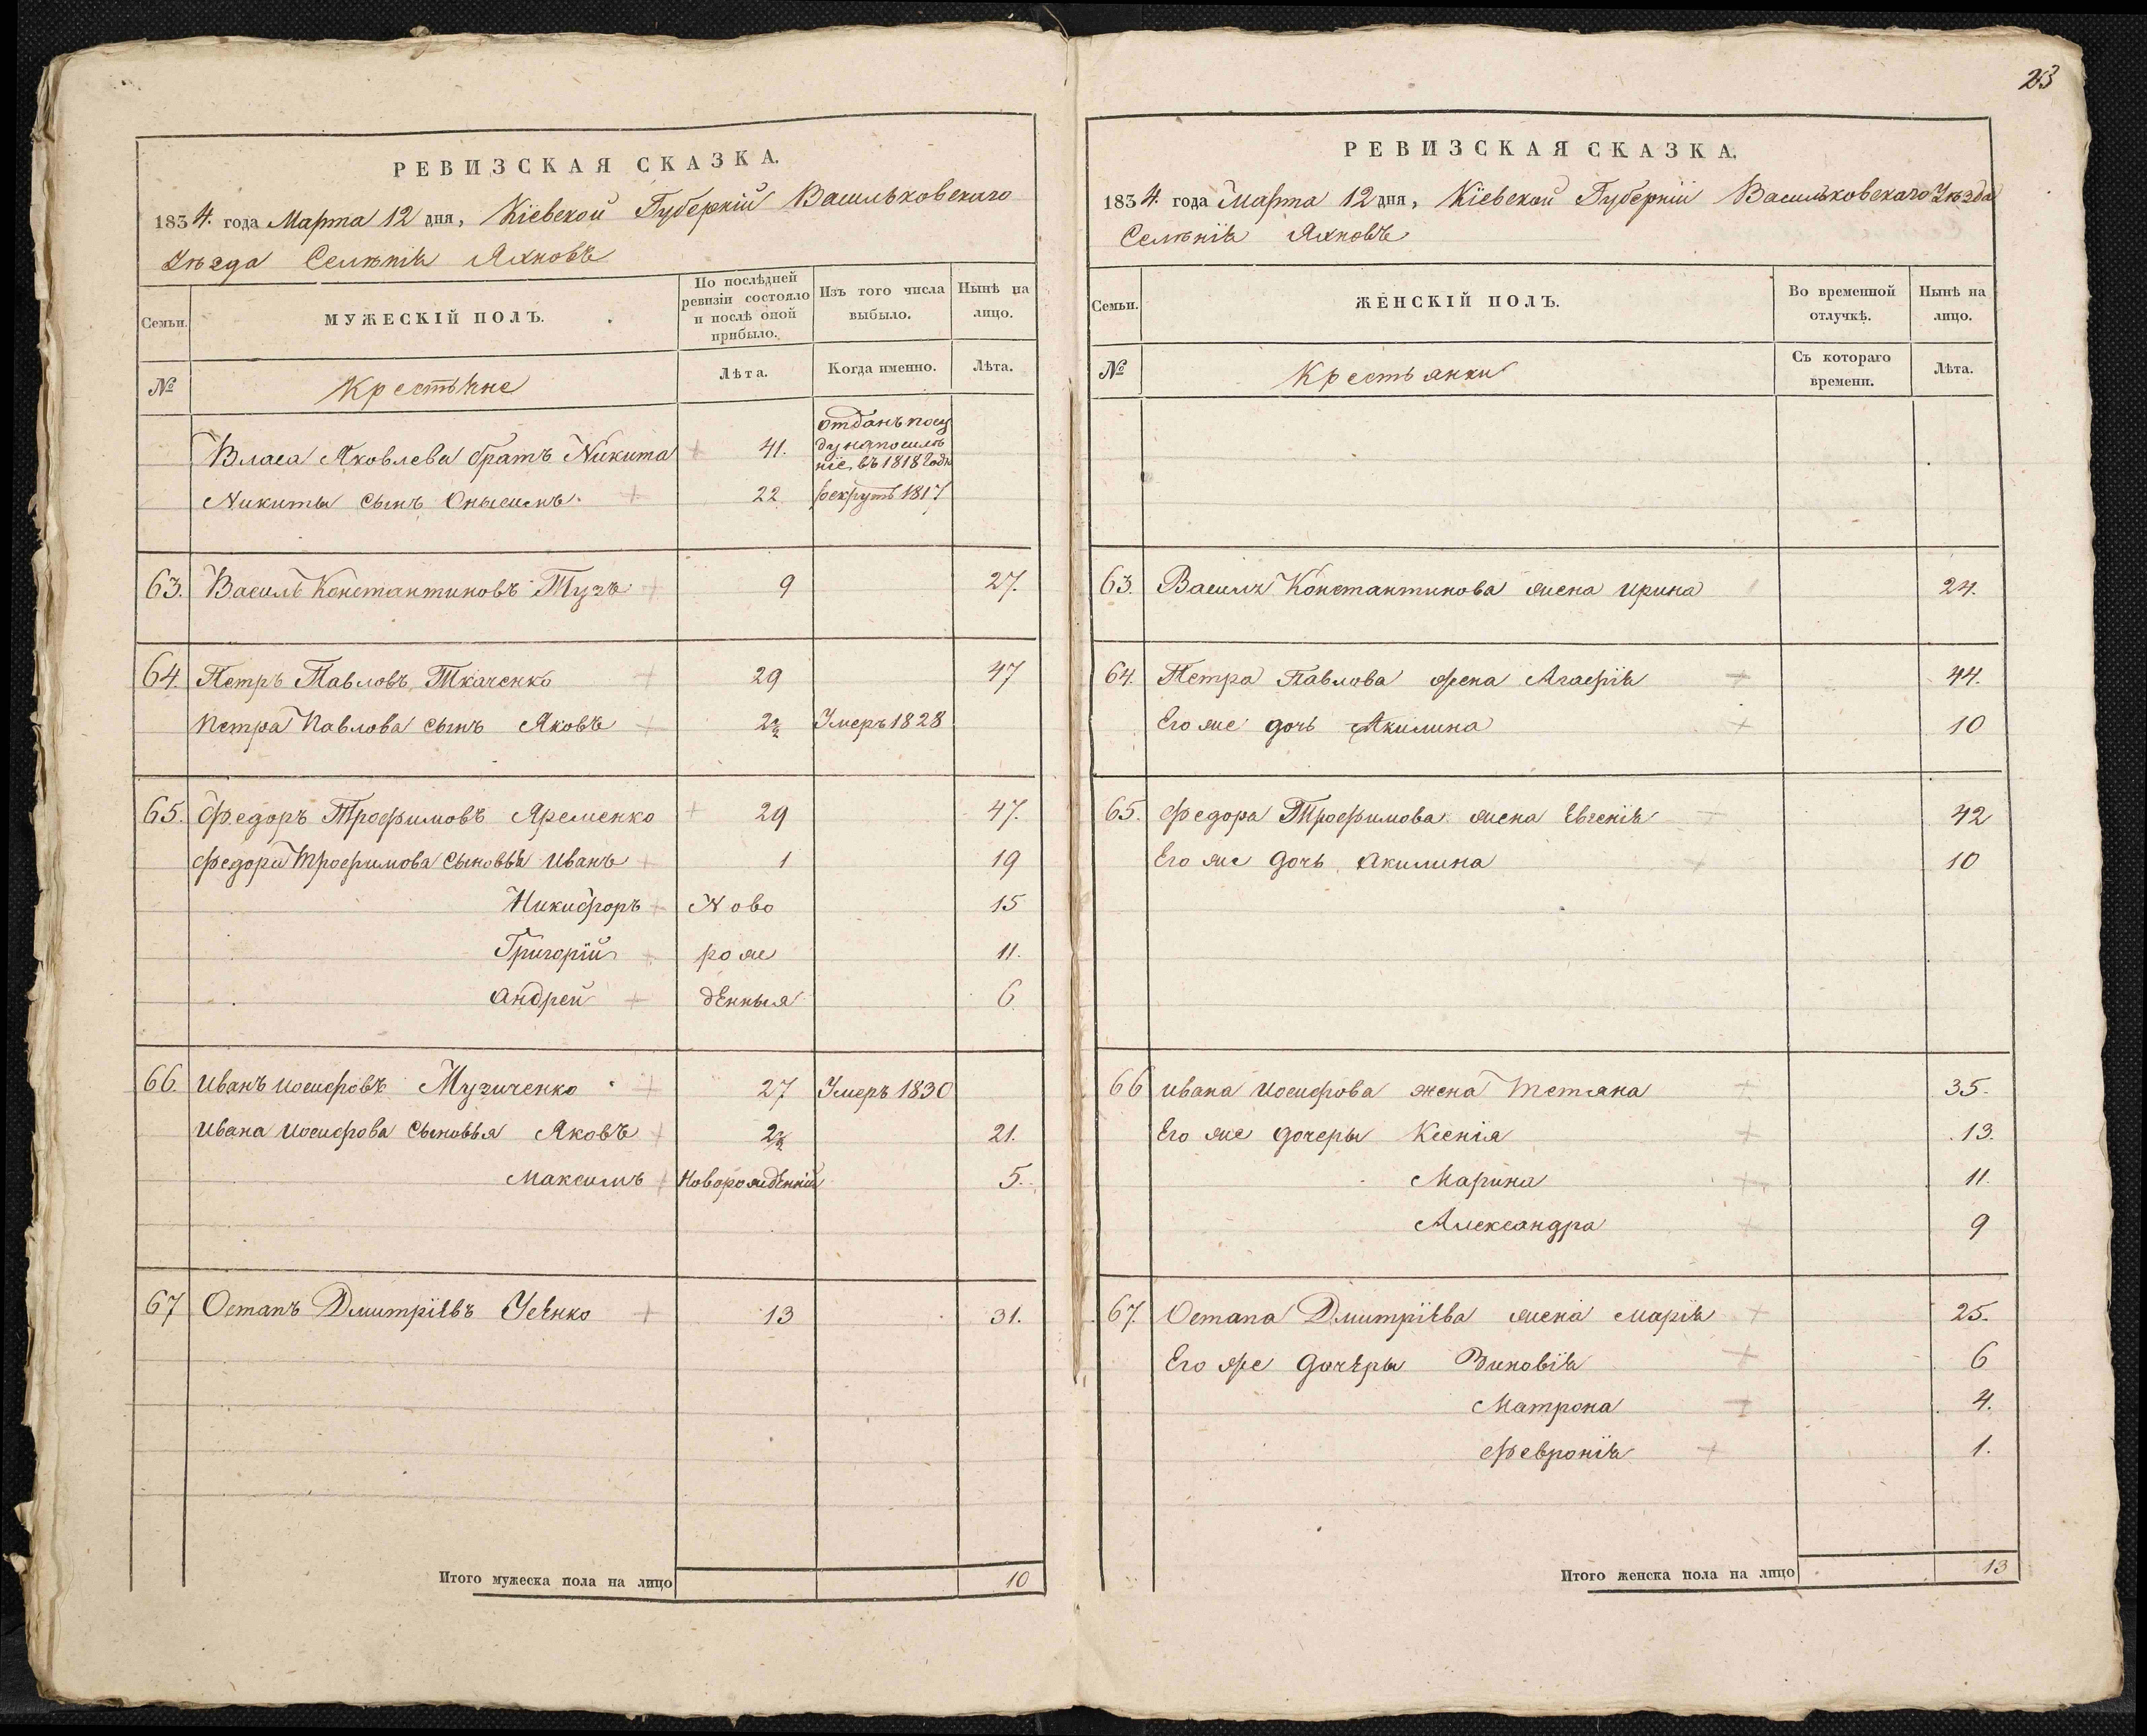 РЕВИЗСКАЯ СКАЗКА.
1834. года Марта 12 дня, Кіевской Губерніи Васильковскаго
Уѣзда Селѣнія Яхновъ
Семьи. МУЖЕСКІЙ ПОЛЪ. По послѣдней ревизіи состояло и послѣ оной прибыло. Изъ того числа выбыло. Нынѣ на лицо.
№ Крестьяне Лѣта. Когда именно. Лѣта.
Власа Яковлева братъ Никита 41. отданъ посу
ду напоселѣ
ніе, въ 1818 годѣ
Никиты сынъ Онысимъ. 22 рекрутъ 1817
63. Василь Константиновъ Тузъ 9 27.
64. Петръ Павловъ Ткаченко 29 47
Петра Павлова сынъ Яковъ 2½ Умеръ 1828
65. Федоръ Трофимовъ Яременко 29 47.
Федора Трофимова сыновья Иванъ 1 19
Никифоръ Ново 15
Григорій рож 11.
Андрей денныя 6
66. Иванъ Иосифовъ Музиченко 27 Умеръ 1830
Ивана Иосифова сыновья Яковъ 2½ 21.
Максимъ Новорожденній 5.
67 Остапъ Дмитріевъ Усенко 13 31.
Итого мужеска пола на лицо 10
23
РЕВИЗСКАЯ СКАЗКА.
1834. года Марта 12 дня, Кіевской Губерніи Васильковскаго Уѣзда
Селѣнія Яхновъ
Семьи. ЖЕНСКІЙ ПОЛЪ. Во временной отлучкѣ. Нынѣ на лицо.
№ Крестьянки Съ котораго времени. Лѣта.
63. Василя Константинова жена Ирина 24.
64. Петра Павлова жена Агафія 44.
Его же дочь Акилина 10
65. Федора Трофимова жена Евгенія 42
Его же дочь Акилина 10
66 Ивана Иосифова жена Тетяна 35.
Его же дочеры Ксенія 13.
Марина 11.
Александра 9
67. Остапа Дмитріева жена Марія 25.
Его же дочеры Зиновія 6
Матрона 4.
Февронія 1.
Итого женска пола на лицо 13